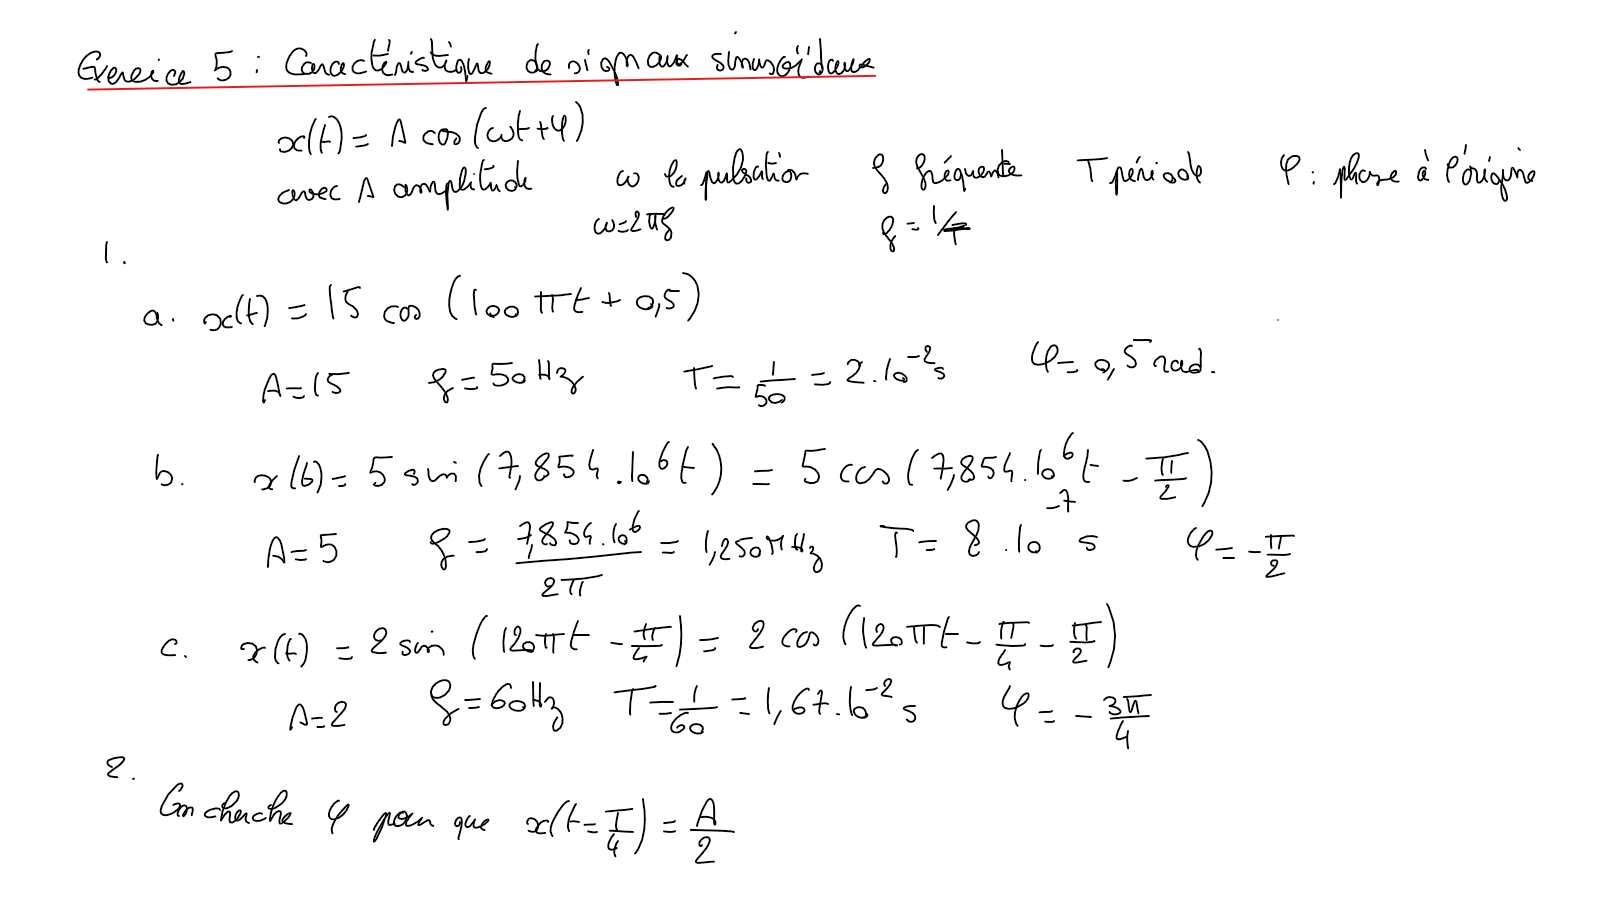 Exercice 5 : Caractéristique de signaux sinusoïdaux
x(t) = A cos (ωt+φ)
avec A amplitude ω la pulsation f fréquente T période φ : phase à l'origine
ω=2πf f = 1/T
1.
a. x(t) = 15 cos (100 πt + 0,5)
A=15 f = 50 Hz T = 1/50 = 2.10⁻² s φ= 0,5 rad.
b. x(t) = 5 sin (7,854.10⁶t) = 5 cos (7,854.10⁶t - π/2)
A=5 f = 7,854.10⁶/2π = 1,250MHz T = 8.10⁻⁷ s φ = -π/2
c. x(t) = 2 sin (120πt - π/4) = 2 cos (120πt - π/4 - π/2)
A=2 f=60Hz T=1/60 = 1,67.10⁻² s φ = - 3π/4
2.
On cherche φ pour que x(t=T/4) = A/2